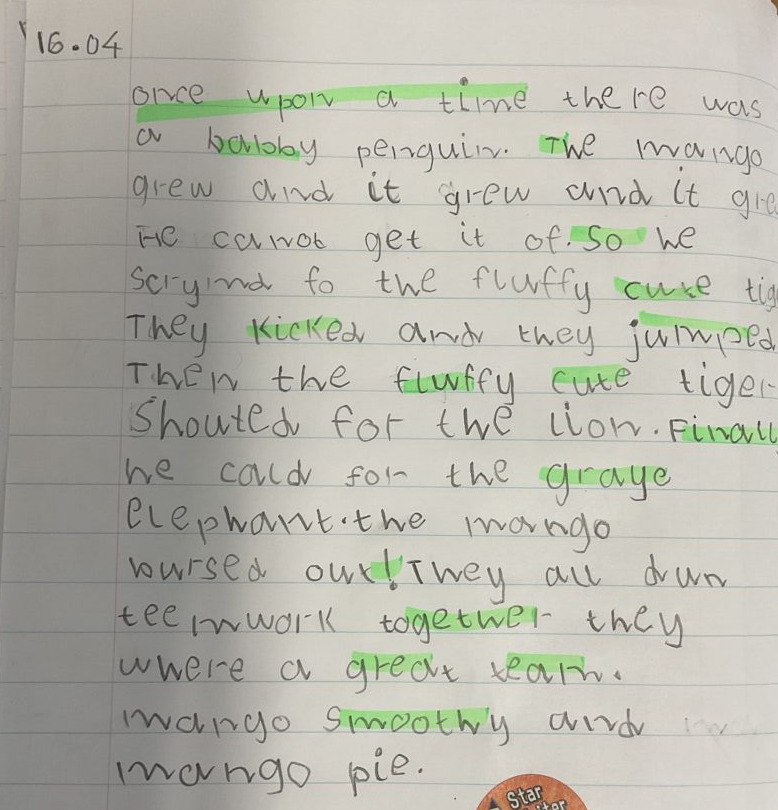 16.04
once upon a time there was
a babby penguin. The mango
grew and it grew and it gre
He canot get it of. So he
scrymd fo the fluffy cute tig
They kicked and they jumped
Then the fluffy cute tiger
Shouted for the lion. Finall
he cald for the graye
elephant. the mango
bursed out! They all dun
teemwork together they
where a great team.
mango smoothy and
mango pie.
Star